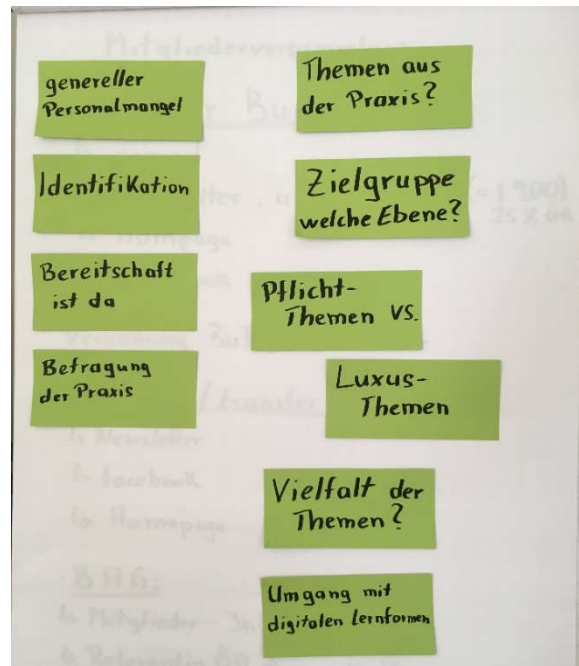 genereller
Personalmangel
Identifikation
Bereitschaft
ist da
Befragung
der Praxis
Themen aus
der Praxis?
Zielgruppe
welche Ebene?
Pflicht-
Themen vs.
Luxus-
Themen
Vielfalt der
Themen?
Umgang mit
digitalen Lernformen
Newsletter
facebook
Homepage
BAG: